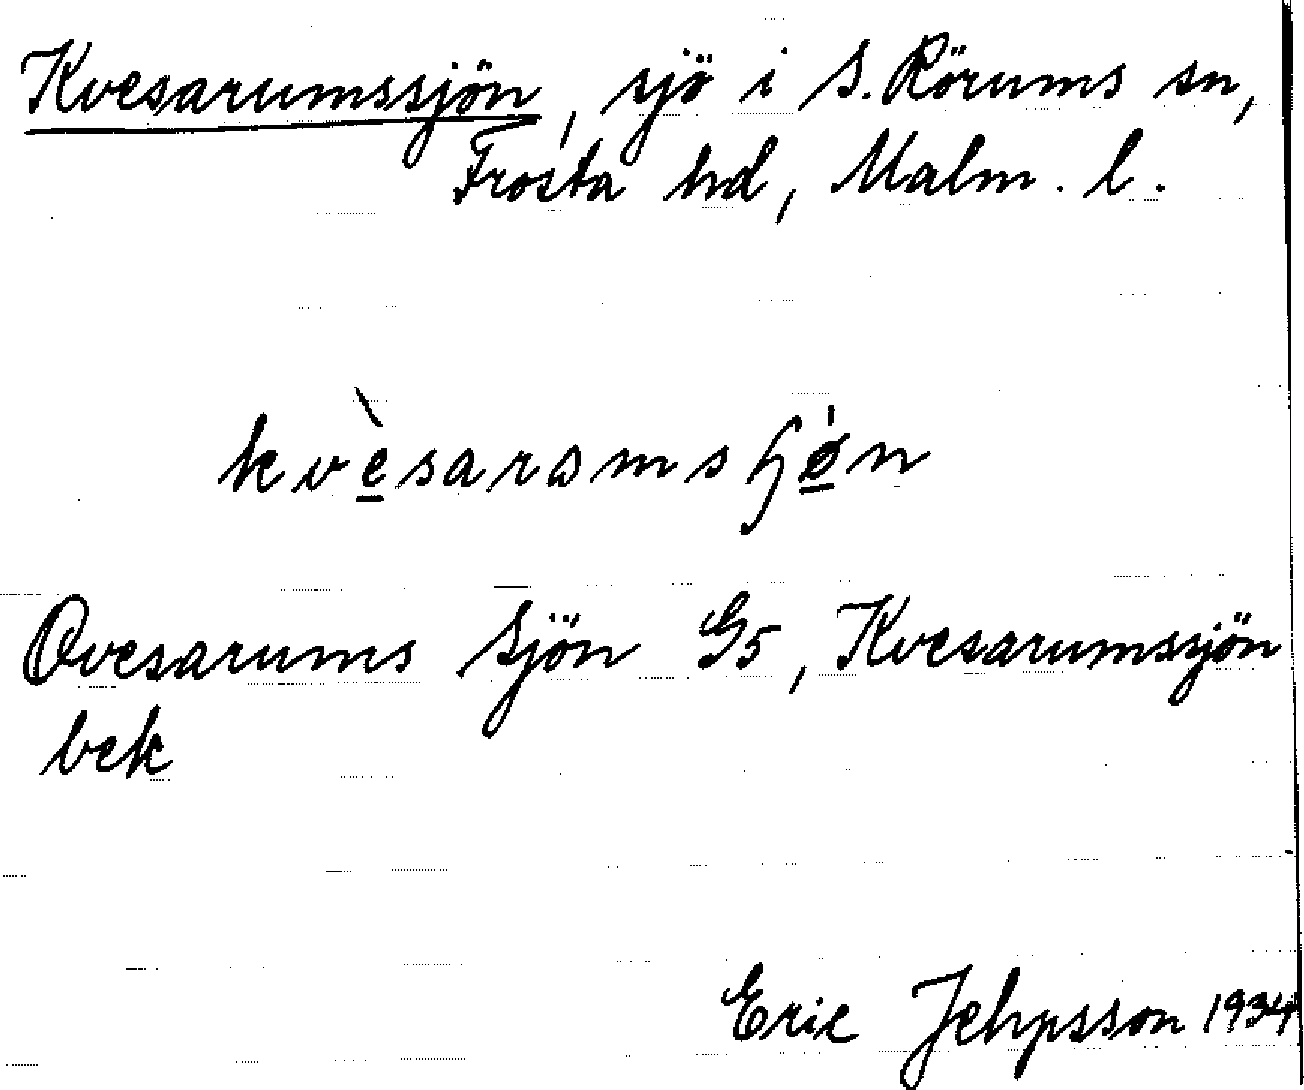 Kvesarumssjön, sjö i S. Rörums sn,
Frosta hd, Malm. l.
Qvesarums Sjön G5, Kvesarumssjön
bek
Eric Jehpsson 1934